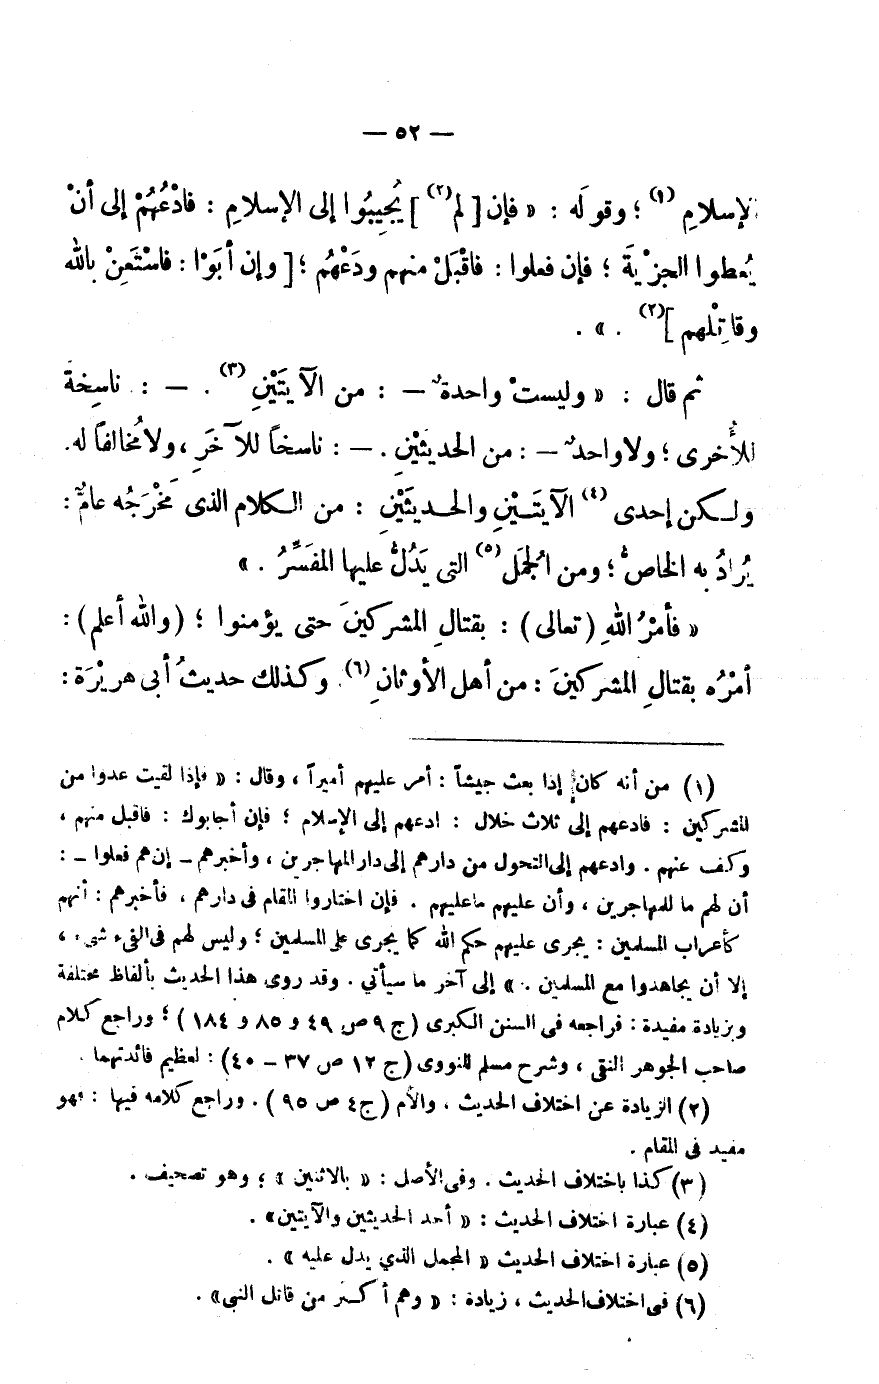 — ٥٢ —
الإسلامِ (١) ؛ وقولَه : « فإن [ لم (٢) ] يُجِيبُوا إلى الإسلامِ : فادْعُهُمْ إلى أنْ
يُعطوا الجزْيةَ ؛ فإن فعلوا : فاقْبَلْ منهم ودَعْهُم ؛ [ وإن أبَوْا : فاسْتَعِنْ بالله
وقاتِلْهم ] (٢) . » .
ثم قال : « وليستْ واحدةٌ — : من الآيَتَيْنِ (٣) . — : ناسِخةً
للأُخرى ؛ ولا واحدٌ — : من الحديثَيْنِ . — : ناسخاً للآخَرِ ، ولا مُخالفاً له.
ولكن إحدى (٤) الآيَتَيْنِ والحديثَيْنِ : من الكلام الذى مَخْرَجُه عامٌّ :
يُرادُ به الخاصُّ ؛ ومن المُجمَل (٥) التى يَدُلُّ عليها المفَسِّرُ . »
« فأمْرُ اللهِ (تعالى) : بقتالِ المشركينَ حتى يؤمنوا ؛ (والله أعلم) :
أمْرُه بقتالِ المشركينَ : من أهل الأوثانِ (٦) . وكذلك حديثُ أبى هريْرَة :
(١) من أنه كان إذا بعث جيشاً : أمر عليهم أميراً ، وقال : « فإذا لقيت عدوا من
المشركين : فادعهم إلى ثلاث خلال : ادعهم إلى الإسلام ؛ فإن أجابوك : فاقبل منهم ،
وكف عنهم . وادعهم إلى التحول من دارهم إلى دار المهاجرين ، وأخبرهم — إن هم فعلوا — :
أن لهم ما للمهاجرين ، وأن عليهم ما عليهم . فإن اختاروا المقام فى دارهم ، فأخبرهم : أنهم
كأعراب المسلمين : يجرى عليهم حكم الله كما يجرى على المسلمين ؛ وليس لهم فى الفىء شىء ،
إلا أن يجاهدوا مع المسلمين . » إلى آخر ما سيأتي . وقد روى هذا الحديث بألفاظ مختلفة
وبزيادة مفيدة : فراجعه فى السنن الكبرى (ج ٩ ص ٤٩ و ٨٥ و ١٨٤) ؛ وراجع كلام
صاحب الجوهر النقى ، وشرح مسلم للنووى (ج ١٢ ص ٣٧ — ٤٠) : لعظيم فائدتهما .
(٢) الزيادة عن اختلاف الحديث ، والأم (ج٤ ص ٩٥) . وراجع كلامه فيها : فهو
مفيد فى المقام .
(٣) كذا باختلاف الحديث . وفى الأصل : « بالاثنين » ؛ وهو تصحيف .
(٤) عبارة اختلاف الحديث : « أحد الحديثين والآيتين» .
(٥) عبارة اختلاف الحديث « المجمل الذي يدل عليه » .
(٦) فى اختلاف الحديث ، زيادة : « وهم أكثر من قاتل النبى» .